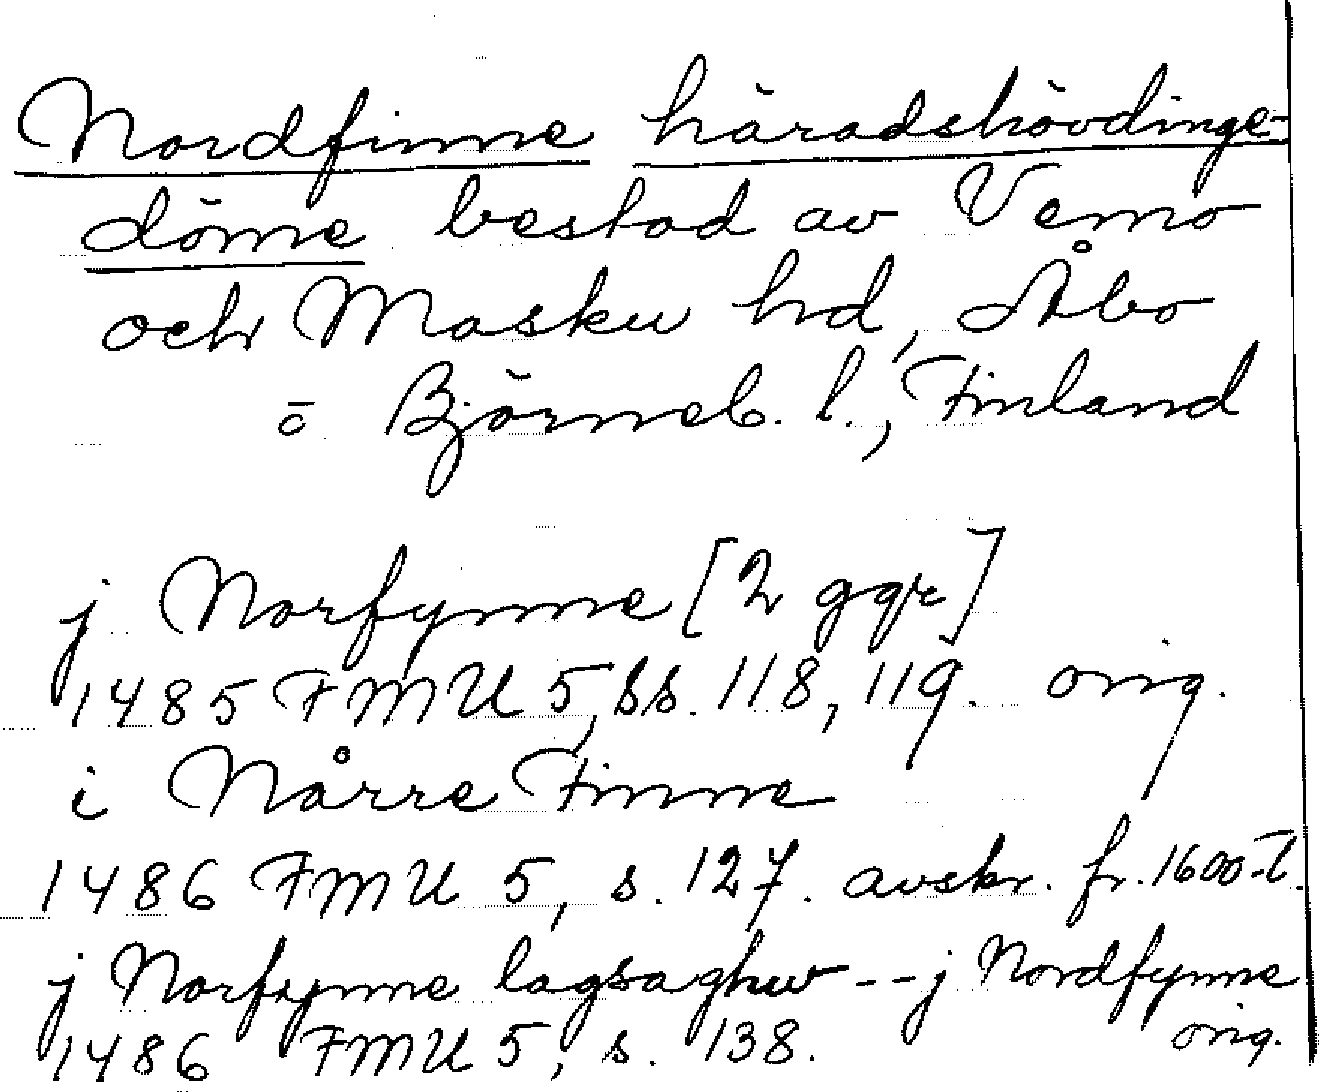 Nordfinne häradshövdinge-
döme bestod av Vemo
och Masku hd, Åbo
o Björneb. l., Finland
j Norfynne [2 ggr]
1485 FMU 5, ss. 118, 119. orig.
i Nårre Finne
1486 FMU 5, s. 127. avskr. fr. 1600-t.
j Norfynne lagsaghw -- j Nordfynne
1486 FMU 5, s. 138. orig.